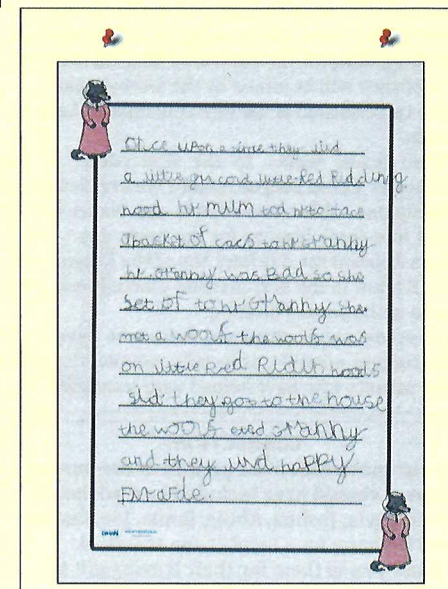 Once upon a time they livd
a little girl cord little Red Ridding
hood hr mum tod hr to tace
a pasket of cacs to hr granny
hr granny was Bad so she
set of to hr Granny she
met a woolf the woolf was
on little Red Ridin hoods
sid they got to the house
the woolf eted Granny
and they livd happy
Evrafde.